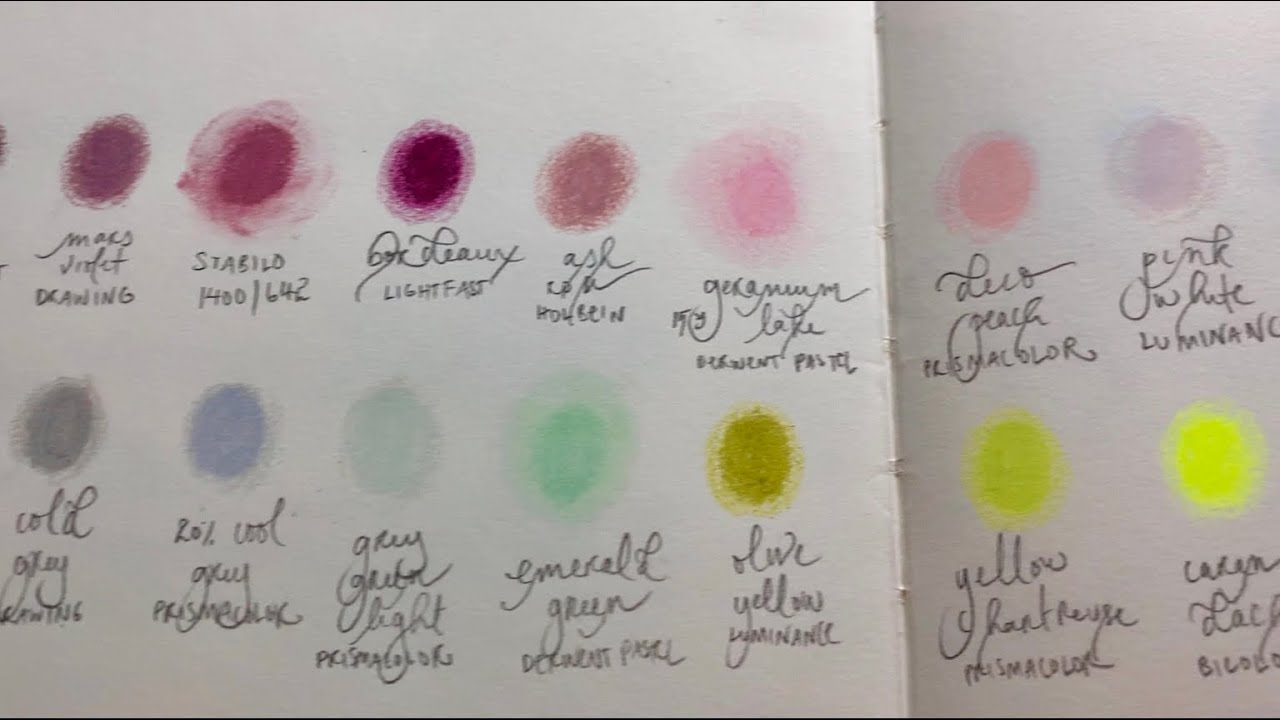 mars
violet
DRAWING
STABILO
1400/642
bordeaux
LIGHTFAST
ash
rose
HOLBEIN
geranium
lake
DERWENT PASTEL
deco
peach
PRISMACOLOR
pink
white
LUMINANC
cold
grey
RAWING
20% cool
grey
PRISMACOLOR
grey
green
light
PRISMACOLOR
emerald
green
DERWENT PASTEL
olive
yellow
LUMINANCE
yellow
chartreuse
PRISMACOLOR
caran
dach
BICOLO